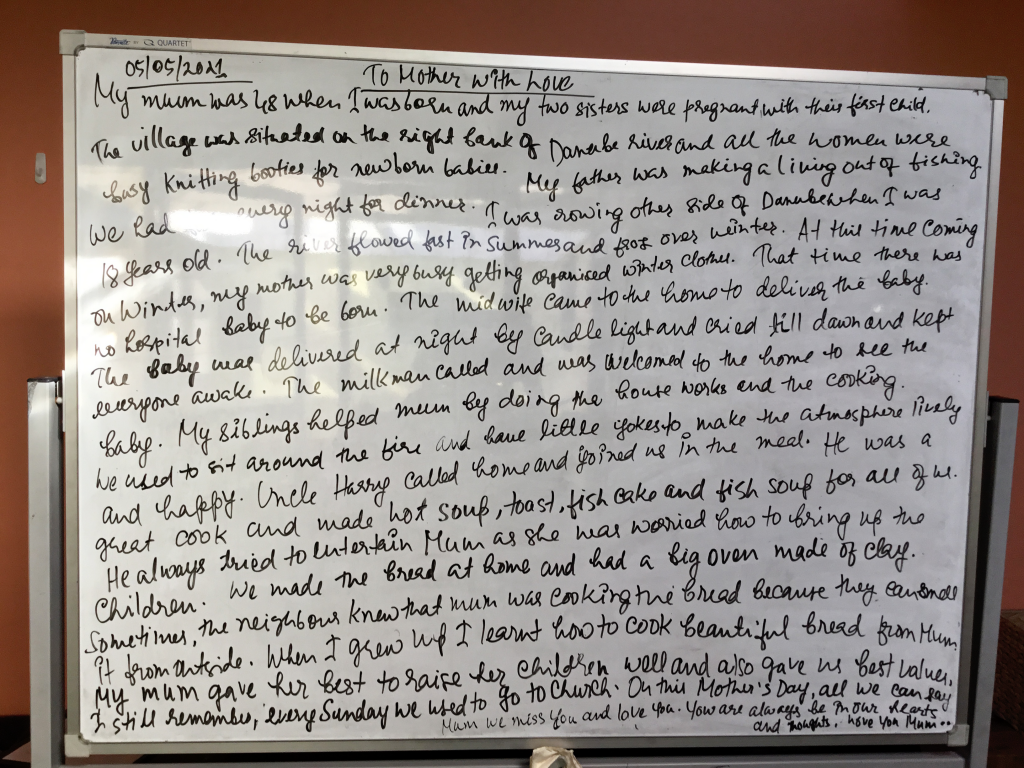 QUARTET
05/05/2021 To Mother with Love
My mum was 48 when I was born and my two sisters were pregnant with their first child.
The village was situated on the right bank of Danube river and all the women were
busy knitting booties for newborn babies. My father was making a living out of fishing
We had every night for dinner. I was rowing other side of Danube when I was
18 years old. The river flowed fast in Summer and froze over winter. At this time coming
on Winter, my mother was very busy getting organised winter clothes. That time there was
no hospital baby to be born. The midwife came to the home to deliver the baby.
The baby was delivered at night by candle light and cried till dawn and kept
everyone awake. The milkman called and was welcomed to the home to see the
baby. My siblings helped mum by doing the house works and the cooking.
We used to sit around the fire and have little yokes to make the atmosphere lively
and happy. Uncle Harry called home and joined us in the meal. He was a
great cook and made hot soup, toast, fish cake and fish soup for all of us.
He always tried to entertain Mum as she was worried how to bring up the
Children. We made the bread at home and had a big oven made of clay.
Sometimes, the neighbours knew that mum was cooking the bread because they can smell
it from outside. When I grew up I learnt how to cook beautiful bread from Mum.
My mum gave her best to raise her children well and also gave us best values.
I still remember, every Sunday we used to go to Church. On this Mother's Day, all we can say
Mum we miss you and love you. You are always be in our hearts
and thoughts. Love you Mum..